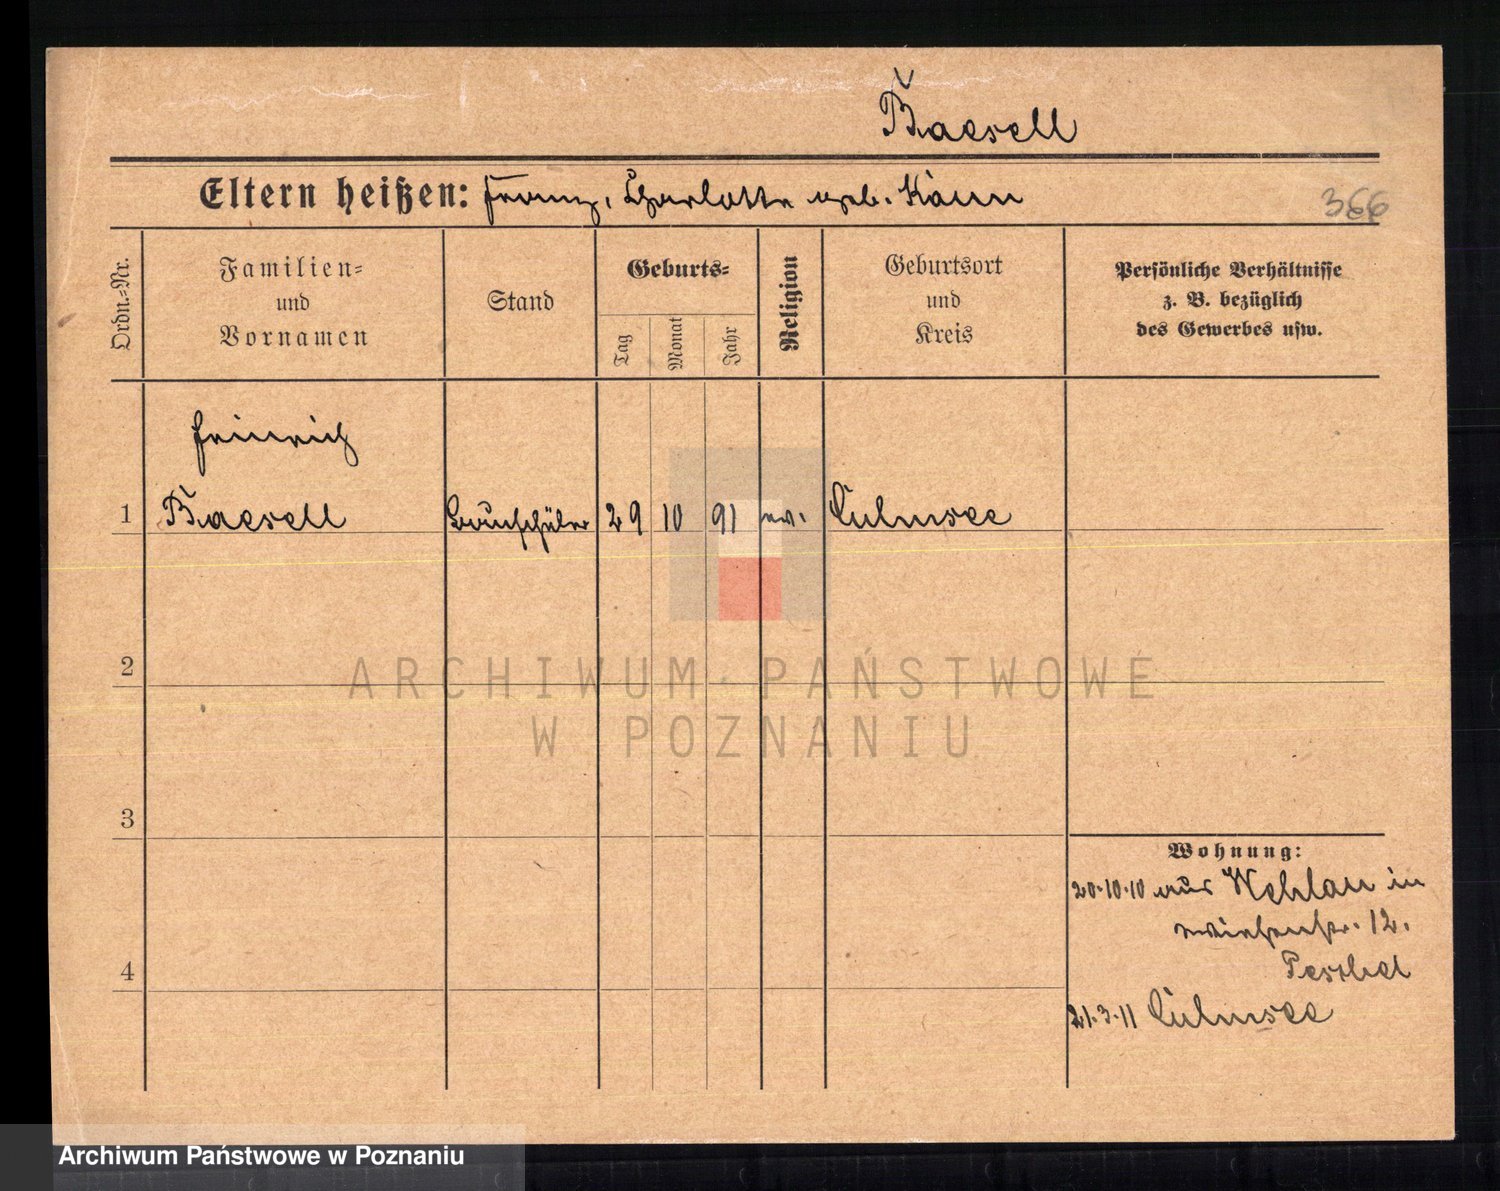 Baesell
Eltern heißen: Franz, Charlotte geb. Kann
366
Ordn.-Nr.
Familien- und Vornamen
Stand
Geburts-
Tag
Monat
Jahr
Religion
Geburtsort und Kreis
Persönliche Verhältnisse
z. B. bezüglich
des Gewerbes usw.
Heinrich
1 Baesell Bauschüler 29 10 91 ev. Culmsee
2
3
4
Wohnung:
20.10.10 aus Wehlau in
12.
21.3.11 Culmsee
ARCHIWUM PAŃSTWOWE
W POZNANIU
Archiwum Państwowe w Poznaniu